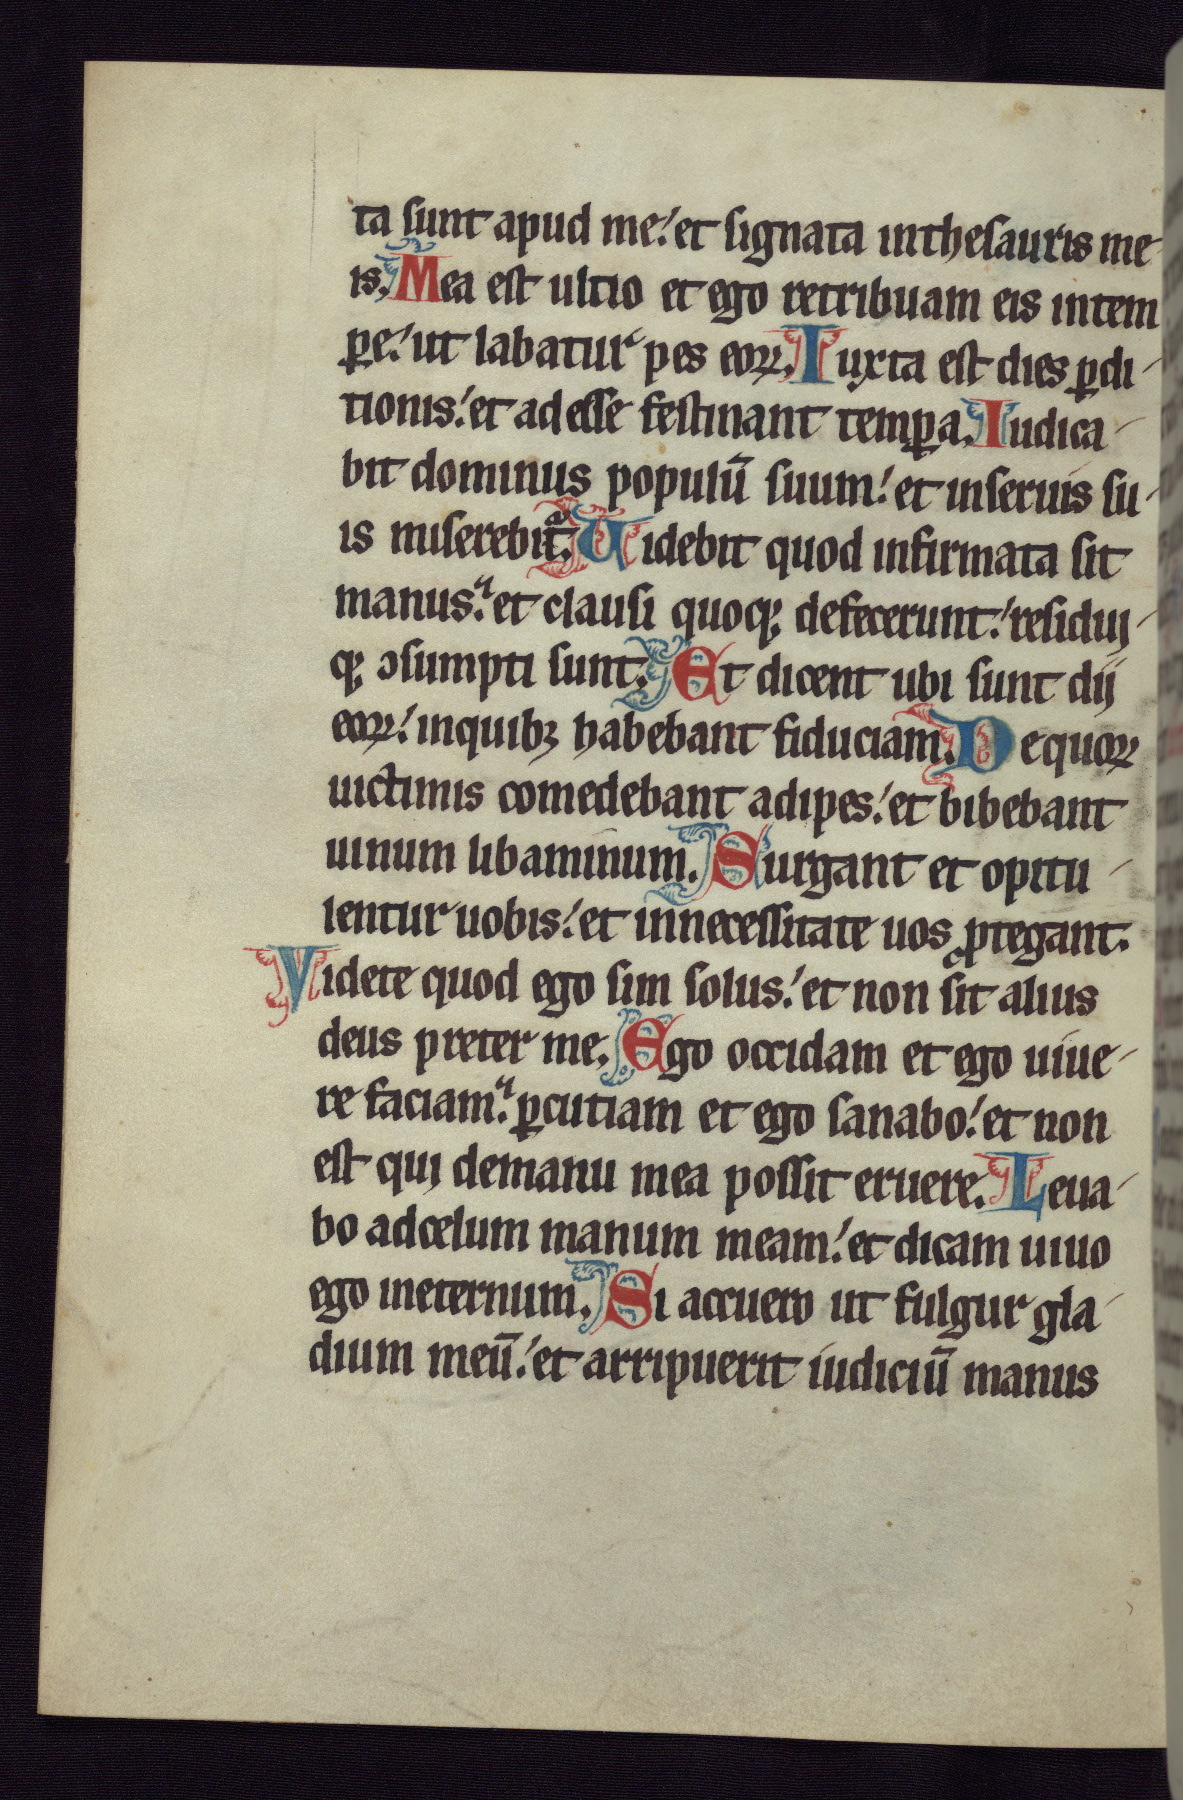 ta sunt apud me: et signata in thesauris me-
is. Mea est ultio et ego retribuam eis in tem
ꝑe: ut labatur pes eoꝝ. Iuxta est dies ꝑdi-
tionis: et adesse festinant temꝑa. Iudica-
bit dominus populū suum: et in seruis su-
is miserebitᷓ. Uidebit quod infirmata sit
manus: et clausi quoqꝫ defecerunt: residuj-
qꝫ ꝯsumpti sunt. Et dicent ubi sunt dij
eoꝝ: in quibꝫ habebant fiduciam. De quoꝝ
uictimis comedebant adipes: et bibebant
uinum libaminum. Surgant et opitu-
lentur uobis: et in necessitate uos ꝓtegant.
Videte quod ego sim solus: et non sit alius
deus preter me. Ego occidam et ego uiue-
re faciam: ꝑcutiam et ego sanabo: et non
est quj de manu mea possit eruere. Leua-
bo ad celum manum meam: et dicam uiuo
ego in eternum. Si accuero ut fulgur gla-
dium meū: et arripuerit iudiciū manus